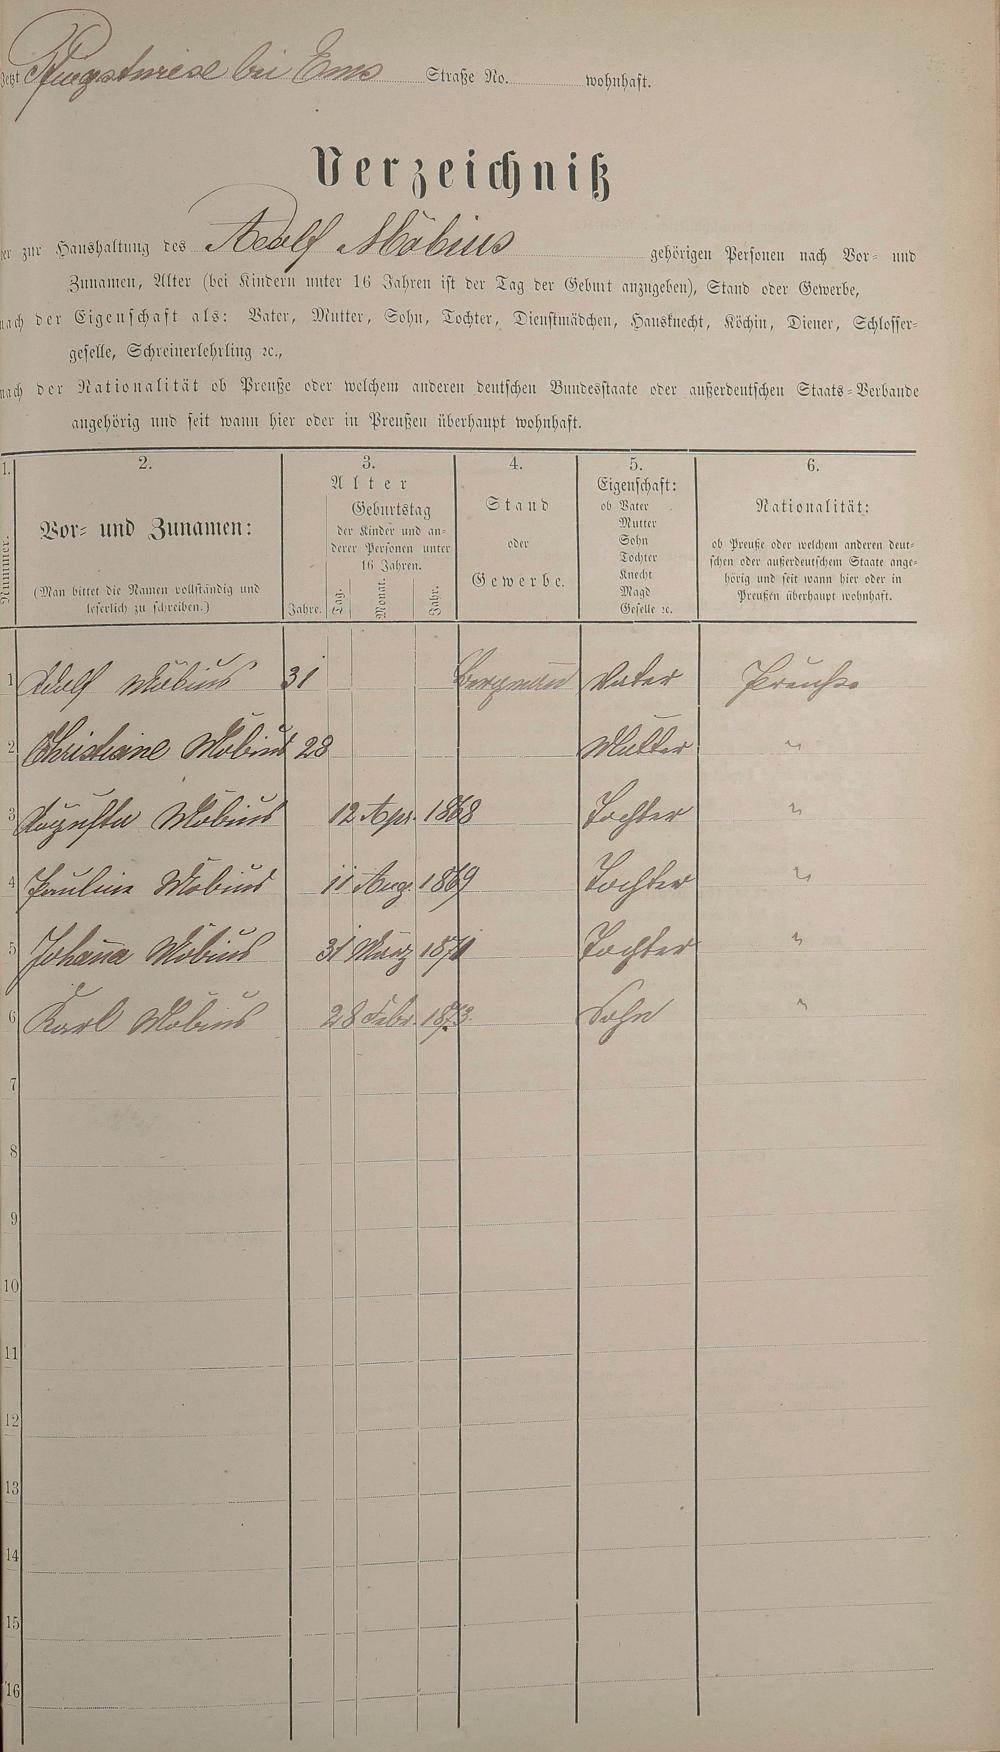 Jetzt Pfingstwiese bei Ems Straße No. wohnhaft.
Verzeichniß
der zur Haushaltung des Adolf Möbius gehörigen Personen nach Vor- und
Zunamen, Alter (bei Kindern unter 16 Jahren ist der Tag der Geburt anzugeben), Stand oder Gewerbe,
nach der Eigenschaft als: Vater, Mutter, Sohn, Tochter, Dienstmädchen, Hausknecht, Köchin, Diener, Schlosser-
geselle, Schreinerlehrling ꝛc.,
nach der Nationalität ob Preuße oder welchem anderen deutschen Bundesstaate oder außerdeutschen Staats-Verbande
angehörig und seit wann hier oder in Preußen überhaupt wohnhaft.
1. Nummer.
2. Vor- und Zunamen:
(Man bittet die Namen vollständig und
leserlich zu schreiben.)
3.
Alter
Jahre.
Geburtstag
der Kinder und an-
derer Personen unter
16 Jahren.
Tag. Monat. Jahr.
4.
Stand
oder
Gewerbe.
5.
Eigenschaft:
ob Vater
Mutter
Sohn
Tochter
Knecht
Magd
Geselle ꝛc.
6.
Nationalität:
ob Preuße oder welchem anderen deut-
schen oder außerdeutschem Staate ange-
hörig und seit wann hier oder in
Preußen überhaupt wohnhaft.
1 Adolf Möbius 31 Bergmañ Vater Preuße
2 Christiane Möbius 28 Mutter "
3 Augusta Möbius 12 Apr. 1868 Tochter "
4 Paulina Möbius 11 Aug. 1869 Tochter "
5 Johaña Möbius 31 März 1871 Tochter "
6 Karl Möbius 28 Febr. 1873. Sohn "
7
8
9
10
11
12
13
14
15
16